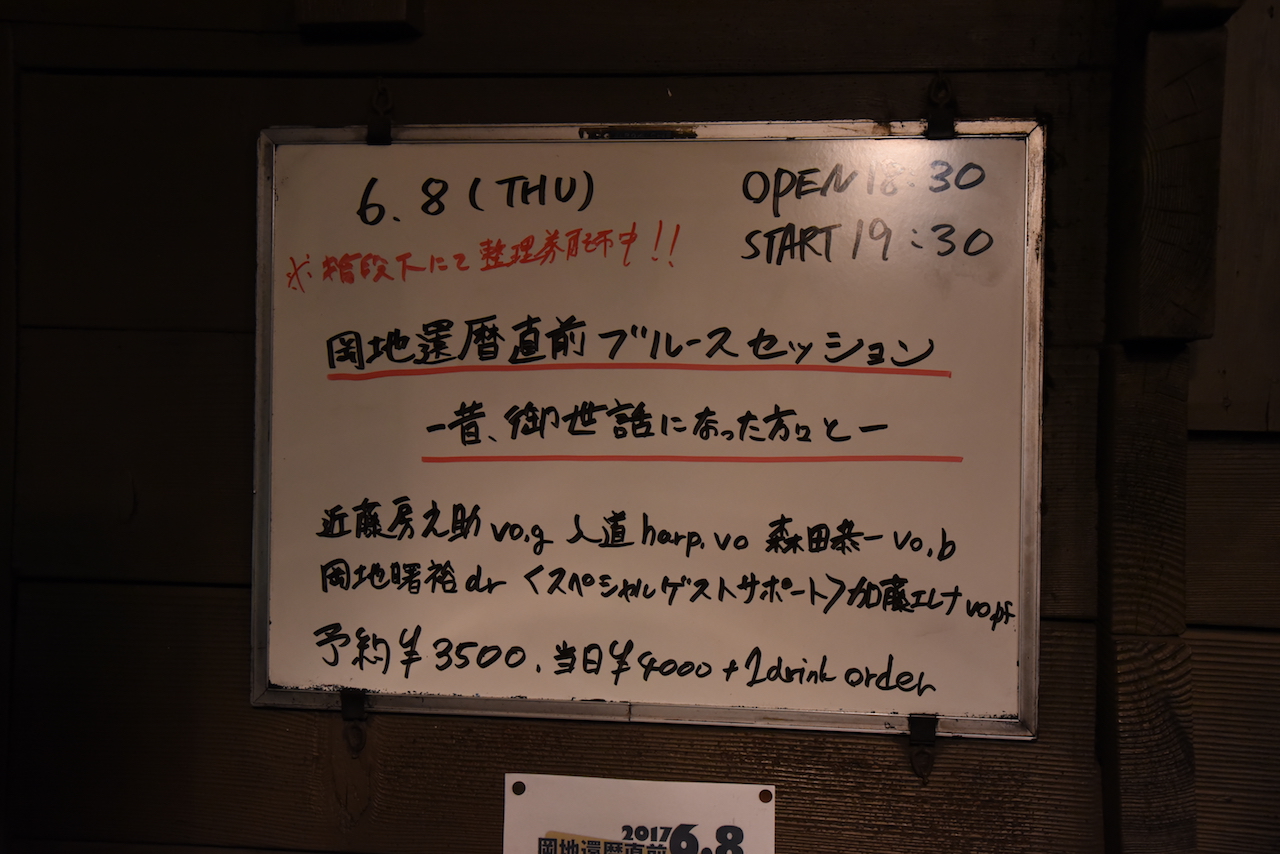 6.8(THU)
OPEN 18:30
START 19:30
※階段下にて整理券配布中!!
岡地還暦直前ブルースセッション
ー昔、御世話になった方々とー
近藤房之助 vo,g 人道 harp,vo 森田恭一 vo,b
岡地曙裕 dr 〈スペシャルゲストサポート〉加藤エレナ vo,pf
予約¥3500、当日¥4000+1drink order
2017 6.8
岡地還暦直前